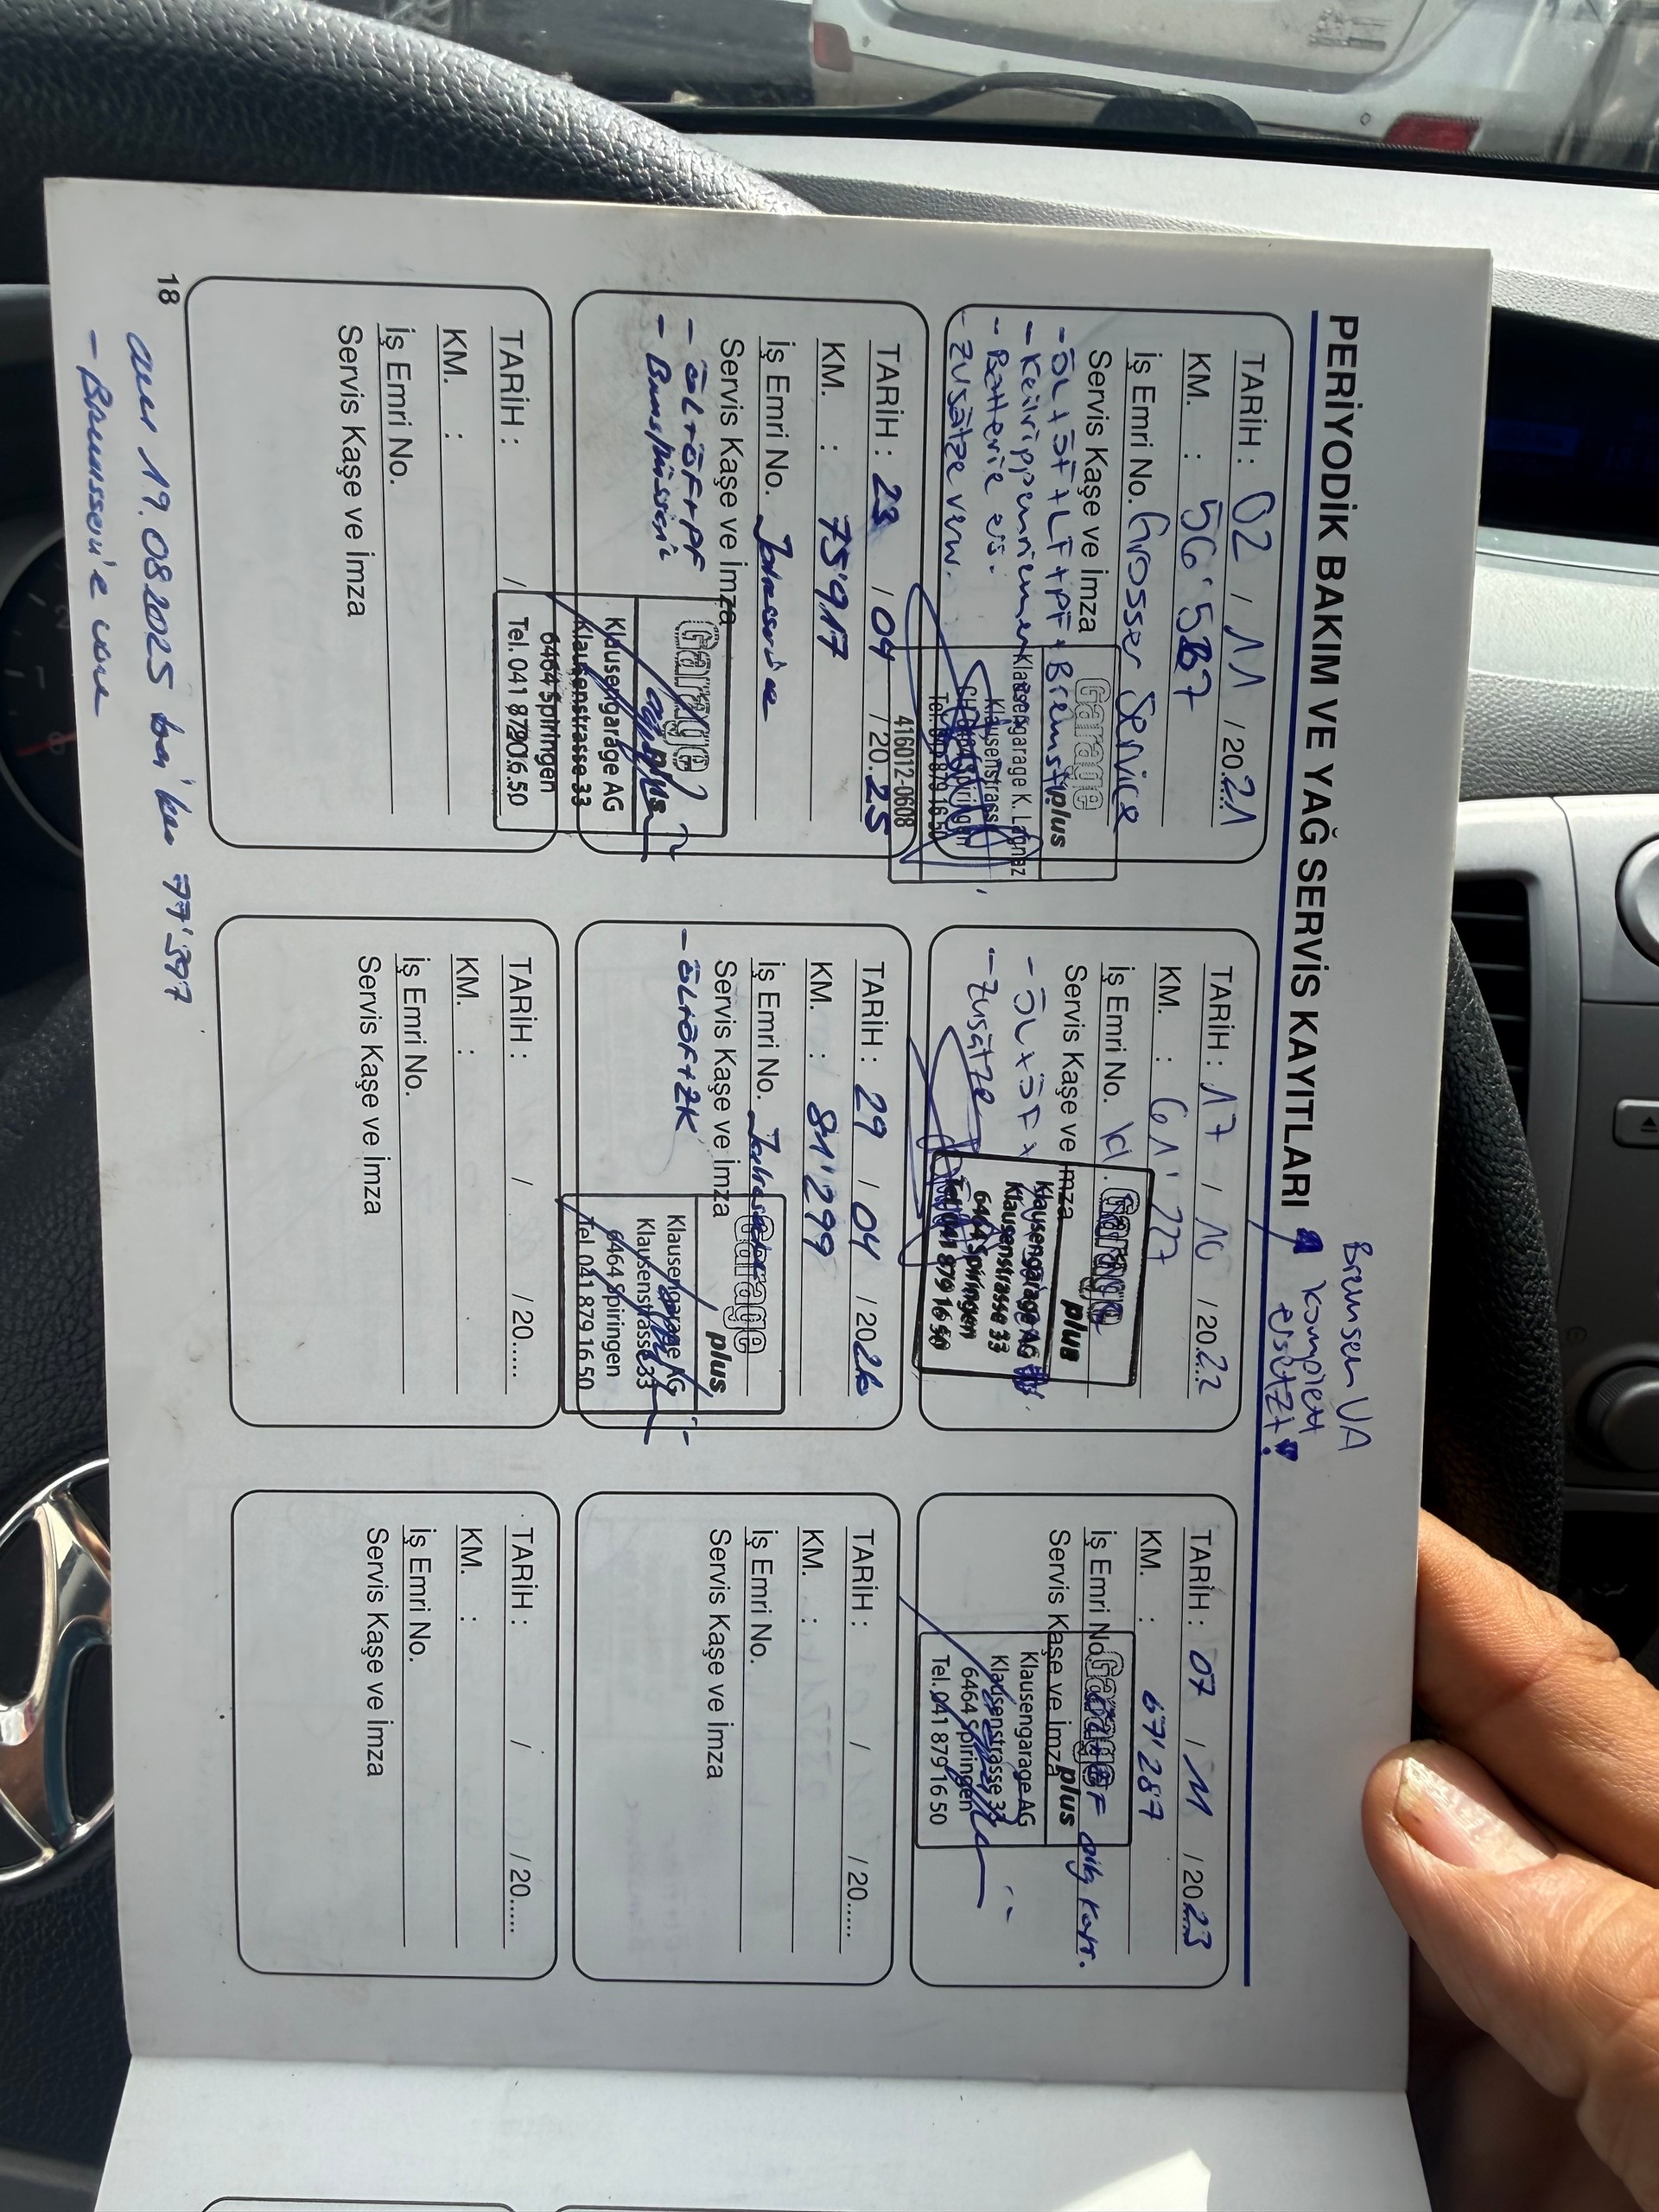 PERİYODİK BAKIM VE YAĞ SERVİS KAYITLARI
Bremsen VA
komplett
ersetzt!
TARİH : 02 / 11 / 2021
KM. : 56'587
İş Emri No. Grosser Service
Servis Kaşe ve İmza
- ÖL + ÖF + LF + PF + Bremsfl.
- Keilrippenriemen
- Batterie ers.
- Zusätze verw.
Garage
plus
Klausengarage K. Lagnaz
Klausenstrasse
CH-6464 Spiringen
Tel. 041 879 16 50
416012-0608
TARİH : 17 / 10 / 2022
KM. : 61'227
İş Emri No. kl.
Servis Kaşe ve İmza
- ÖL + ÖF +
- Zusätze
Garage
plus
Klausengarage AG
Klausenstrasse 33
6464 Spiringen
Tel. 041 879 16 50
TARİH : 07 / 11 / 2023
KM. : 67'287
İş Emri No. ÖF dig. Kart.
Servis Kaşe ve İmza
Garage
plus
Klausengarage AG
Klausenstrasse 33
6464 Spiringen
Tel. 041 879 16 50
TARİH : 23 / 04 / 2025
KM. : 75'917
İş Emri No. Jahresservice
Servis Kaşe ve İmza
- ÖL + ÖF + PF
- Bremsflüssig.
Garage
plus
Klausengarage AG
Klausenstrasse 33
6464 Spiringen
Tel. 041 879 16 50
TARİH : 29 / 04 / 2026
KM. : 81'299
İş Emri No.
Servis Kaşe ve İmza
- ÖL + ÖF + ZK
Garage
plus
Klausengarage AG
Klausenstrasse 33
6464 Spiringen
Tel. 041 879 16 50
TARİH : / / 20.....
KM. :
İş Emri No.
Servis Kaşe ve İmza
TARİH : /
KM. :
İş Emri No.
Servis Kaşe ve İmza
TARİH : / / 20.....
KM. :
İş Emri No.
Servis Kaşe ve İmza
TARİH : / / 20.....
KM. :
İş Emri No.
Servis Kaşe ve İmza
18
am 19.08.2025 bei km 77'397
- Bremsen